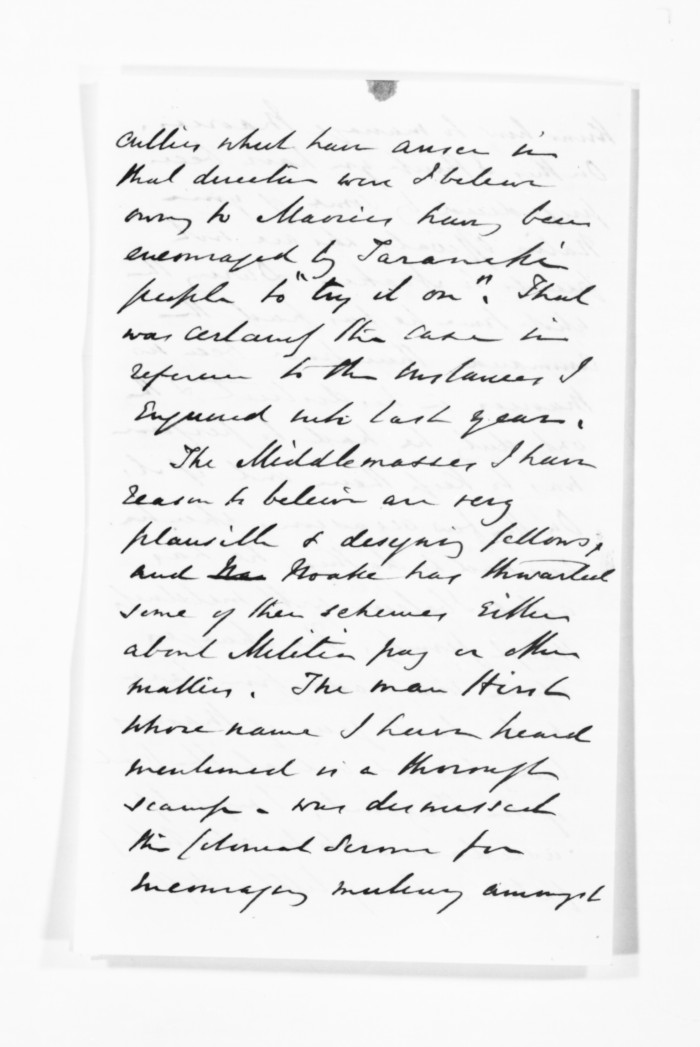 culties which have arisen in
that direction were I believe
owing to Maories having been
encouraged by Taranaki
people to "try it on". That
was certainly the case in
reference to the instances I
Enquired into last year.
The Middlemasses I have
reason to believe are very
plausible & designing fellows,
and Noake has thwarted
some of their schemes Either
about Militia pay or other
matters. The man Hirst
whose name I have heard
mentioned is a thorough
scamp - was dismissed
the Colonial Service for
encouraging mutiny amongst